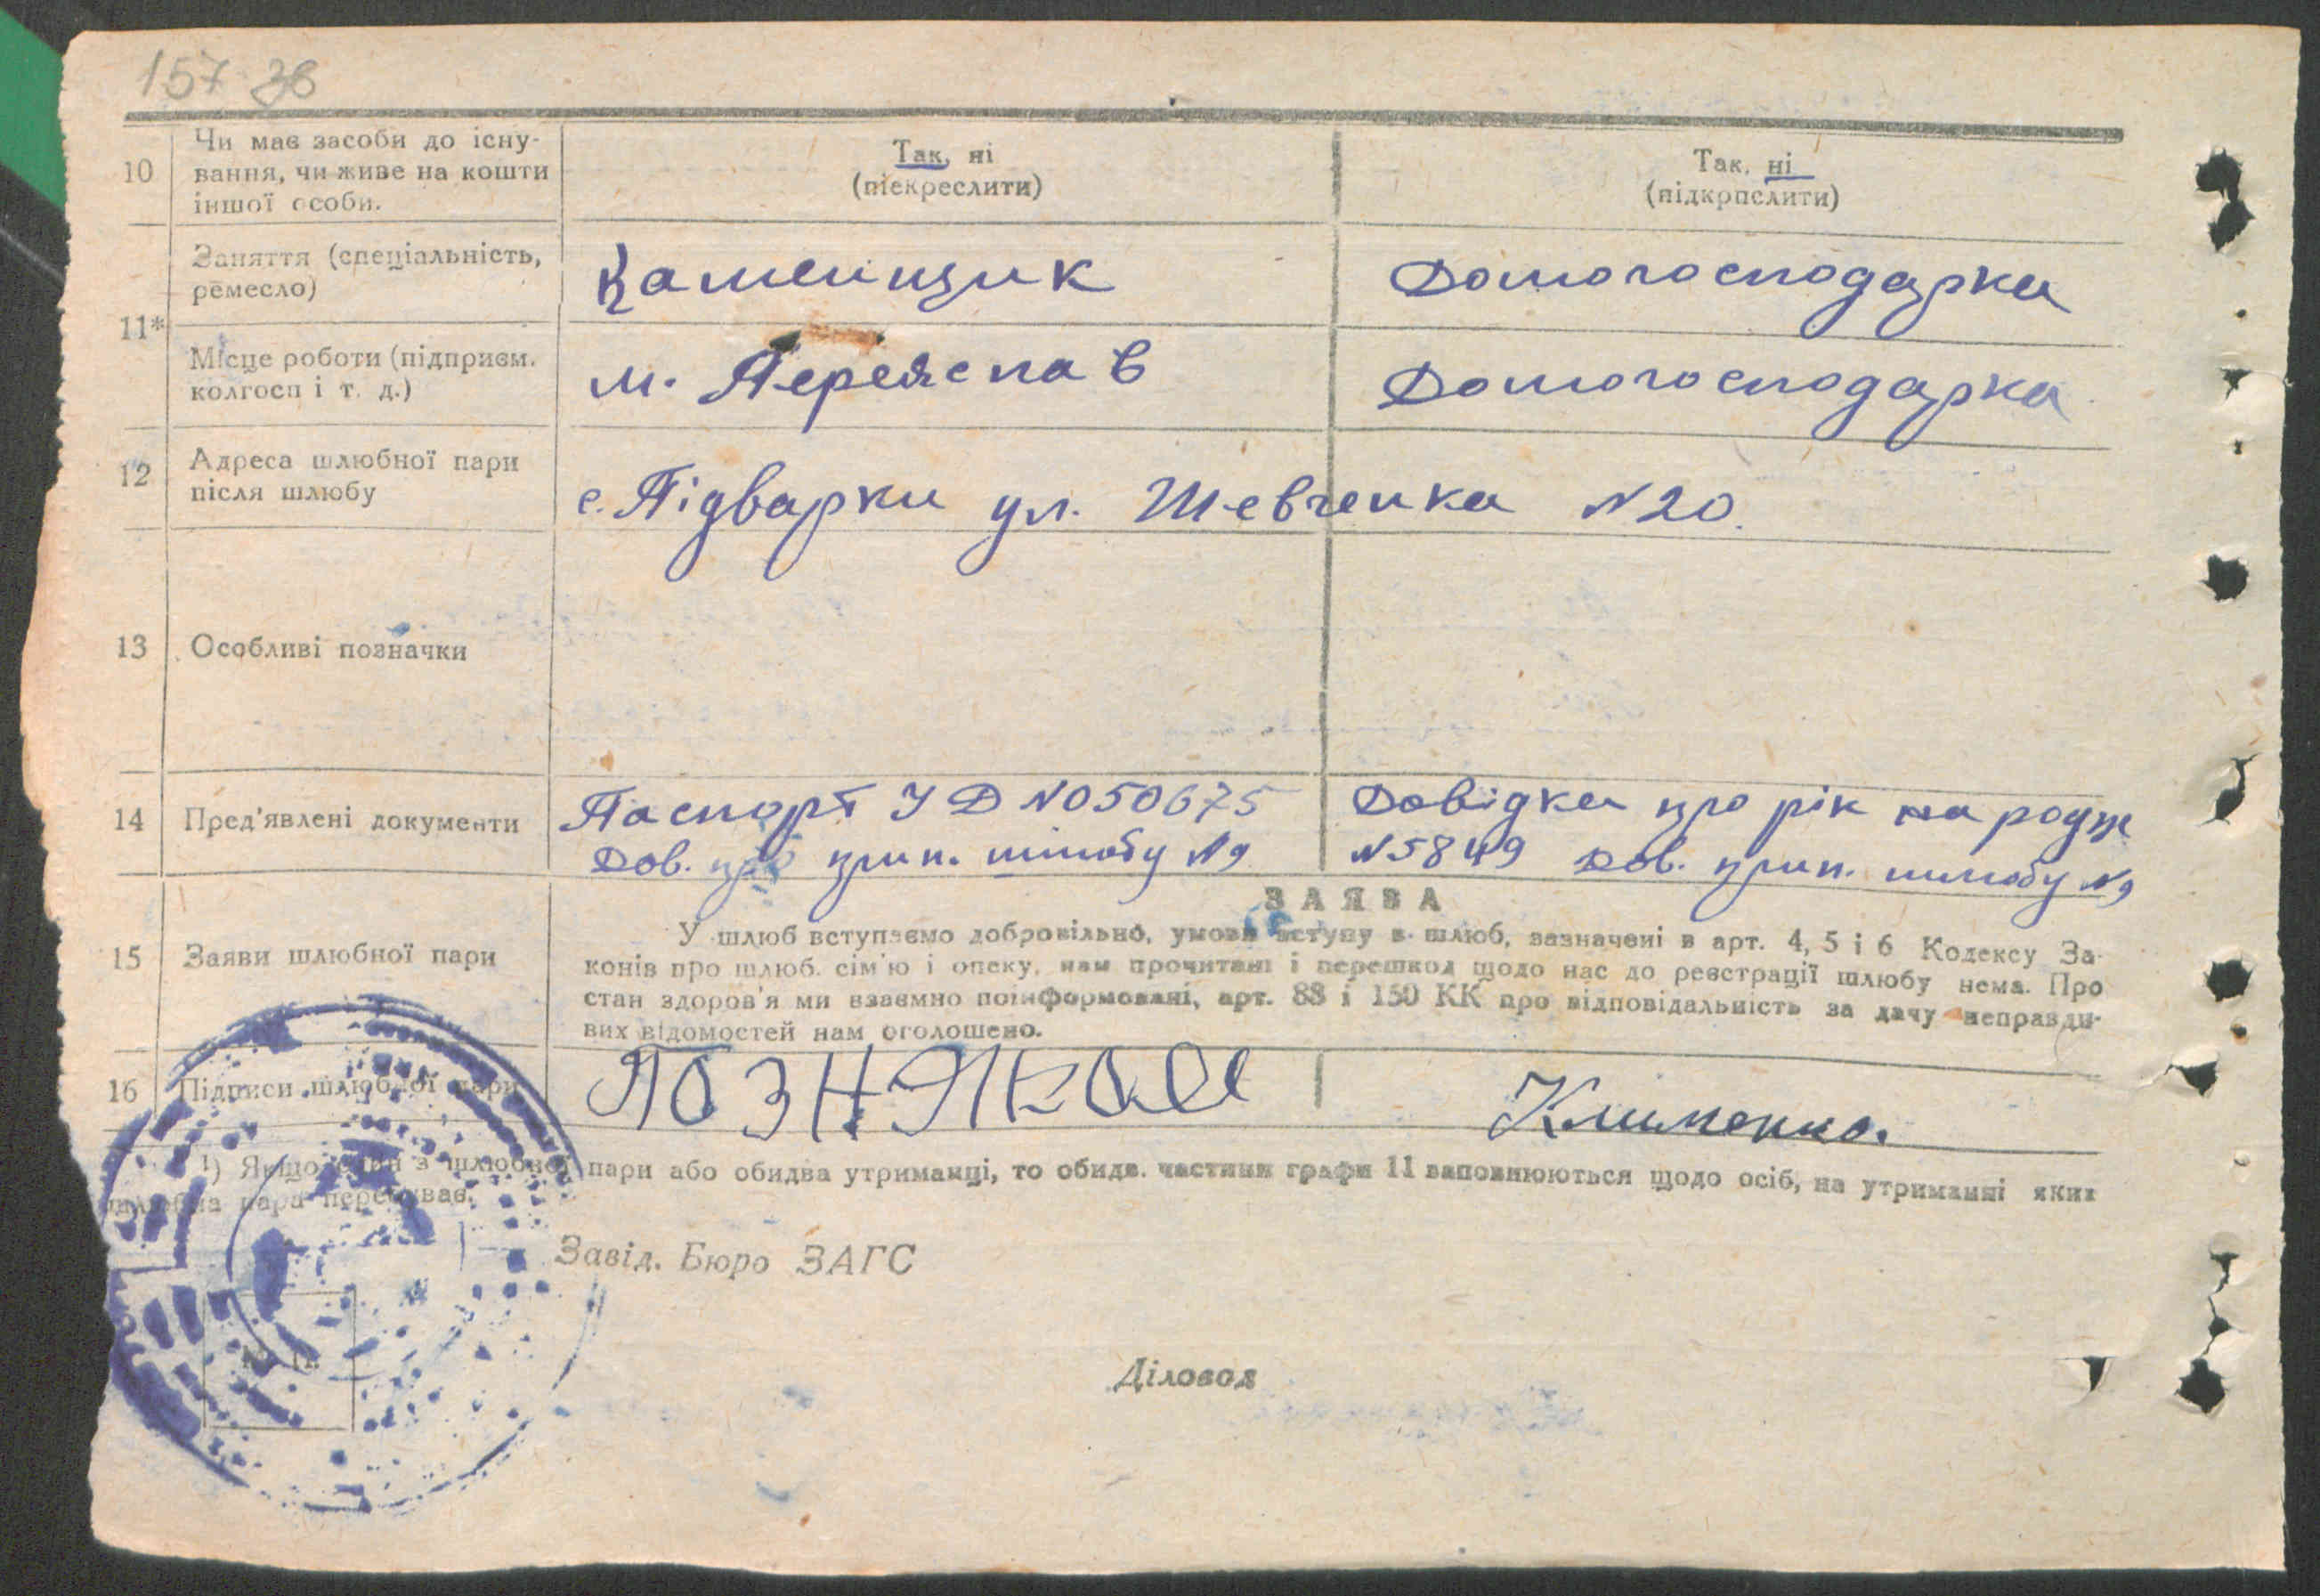 157 зв
10 Чи має засоби до існу- Так, ні Так, ні
вання, чи живе на кошти (піекреслити) (підкрпслити)
іншої особи.
11* Заняття (спеціальність, Каменщик Домогосподарка
ремесло)
Місце роботи (підприєм. м. Переяслав Домогосподарка
колгосп і т. д.)
12 Адреса шлюбної пари с. Підварки ул. Шевченка N 20.
після шлюбу
13 Особливі позначки
14 Пред'явлені документи Паспорт УД N 050675 Довідка про рік на родж
Дов. про прип. шлюбу N 9 N 5849 Дов. прип. шлюбу N 9
ЗАЯВА
15 Заяви шлюбної пари У шлюб вступаємо добровільно, умови вступу в шлюб, зазначені в арт. 4, 5 і 6 Кодексу За-
конів про шлюб. сім'ю і опеку, нам прочитані і перешкод щодо нас до реєстрації шлюбу нема. Про
стан здоров'я ми взаємно поінформовані, арт. 88 і 150 КК про відповідальність за дачу неправди-
вих відомостей нам оголошено.
16 Підписи шлюбної пари Клименко.
¹) Якщо один з шлюбної пари або обидва утриманці, то обидв. частини графи 11 заповнюються щодо осіб, на утриманні яких
шлюбна пара перебуває.
Завід. Бюро ЗАГС
Діловод